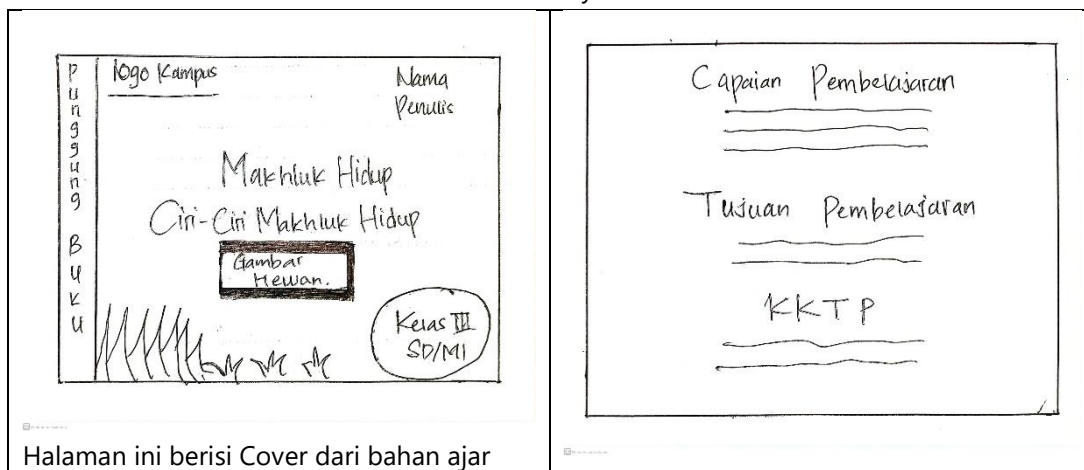 Punggung Buku
Logo Kampus
Nama
Penulis
Makhluk Hidup
Ciri-Ciri Makhluk Hidup
Gambar
Hewan.
Kelas III
SD/MI
Halaman ini berisi Cover dari bahan ajar
Capaian Pembelajaran
Tujuan Pembelajaran
KKTP